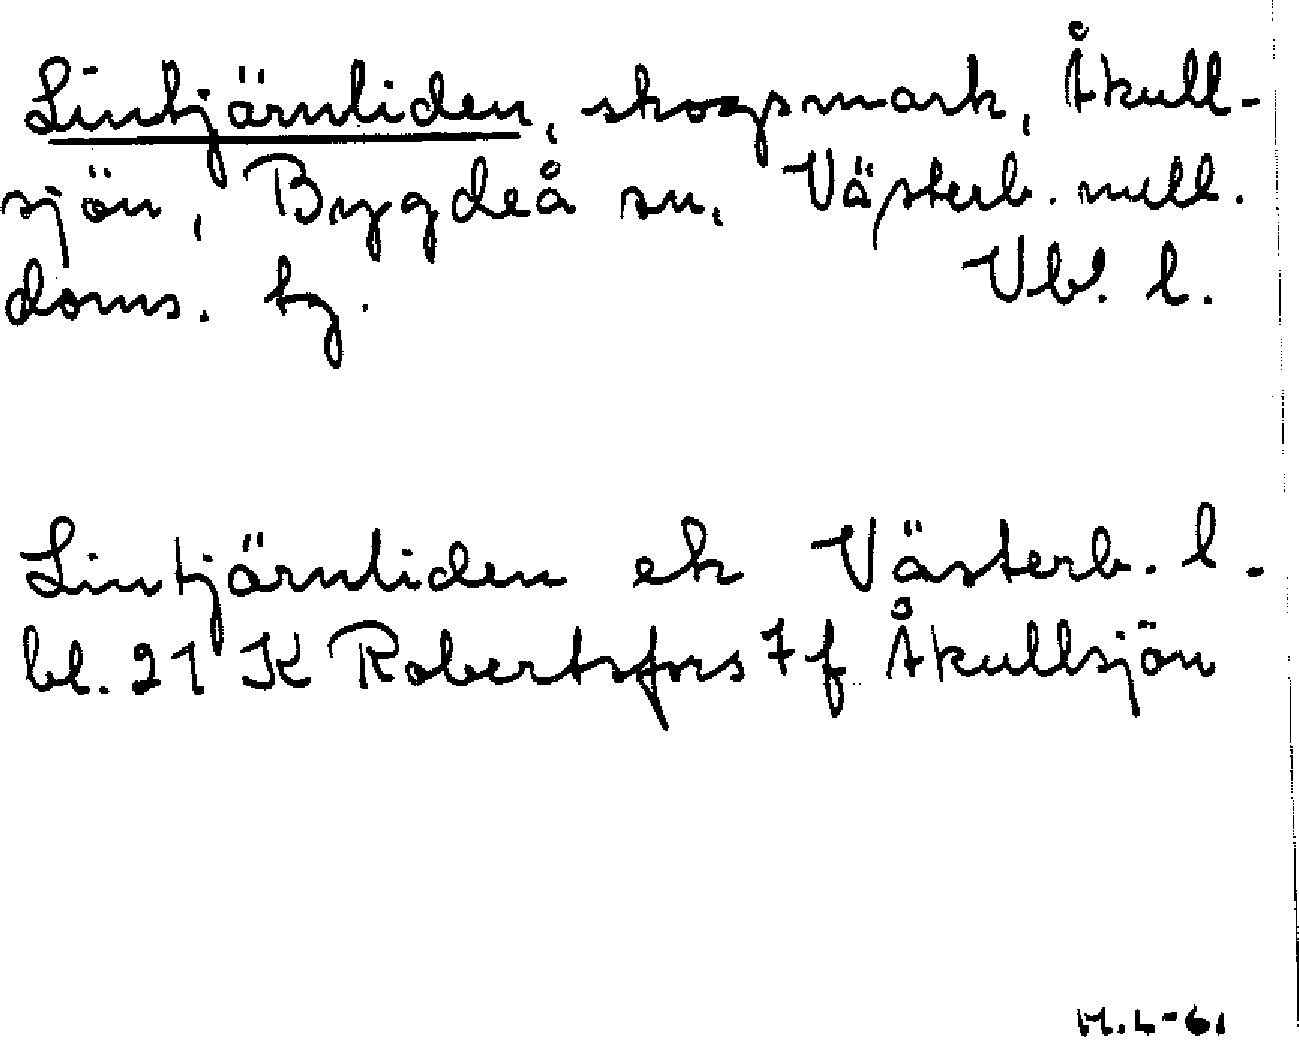 Lintjärnliden, skogsmark, Åkull-
sjön, Bygdeå sn, Västerb. mell.
doms. tg. Vb. l.
Lintjärnliden ek Västerb. l.
bl. 21 K Robertsfors 7 f Åkullsjön
M.L-61